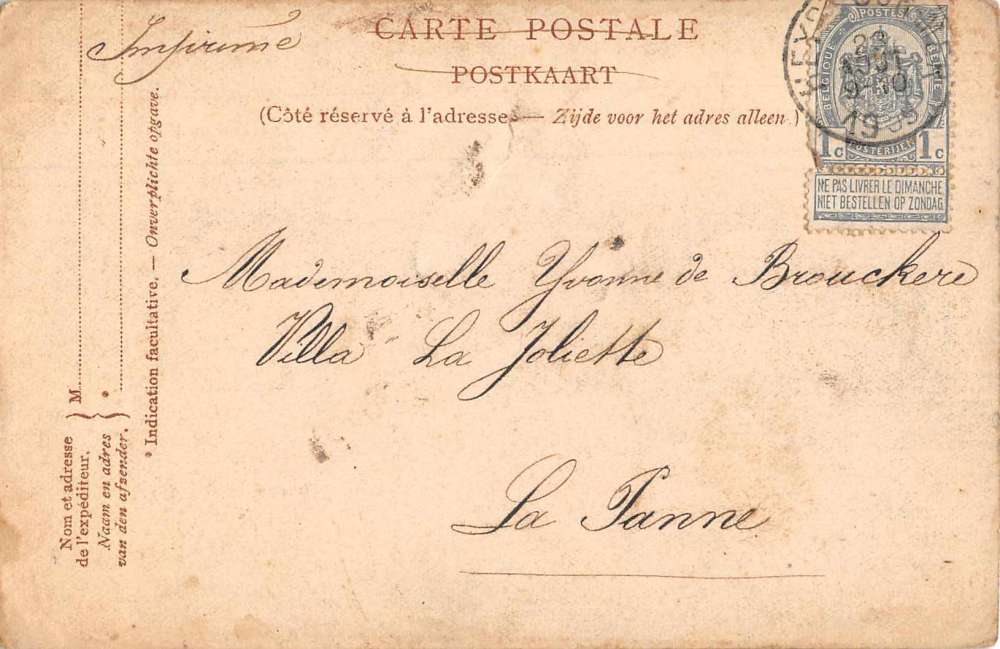 Imprimé
CARTE POSTALE
POSTKAART
(Côté réservé à l'adresse — Zijde voor het adres alleen)
POSTES
BELGIQUE
BELGIË
POSTERIJEN
1c 1c
NE PAS LIVRER LE DIMANCHE
NIET BESTELLEN OP ZONDAG
22
AOUT
9-10
19
Mademoiselle Yvonne de Brouckere
Villa "La Joliette
La Panne
Nom et adresse
de l'expéditeur.
Naam en adres
van den afzender.
M
*
* Indication facultative. — Onverplichte opgave.